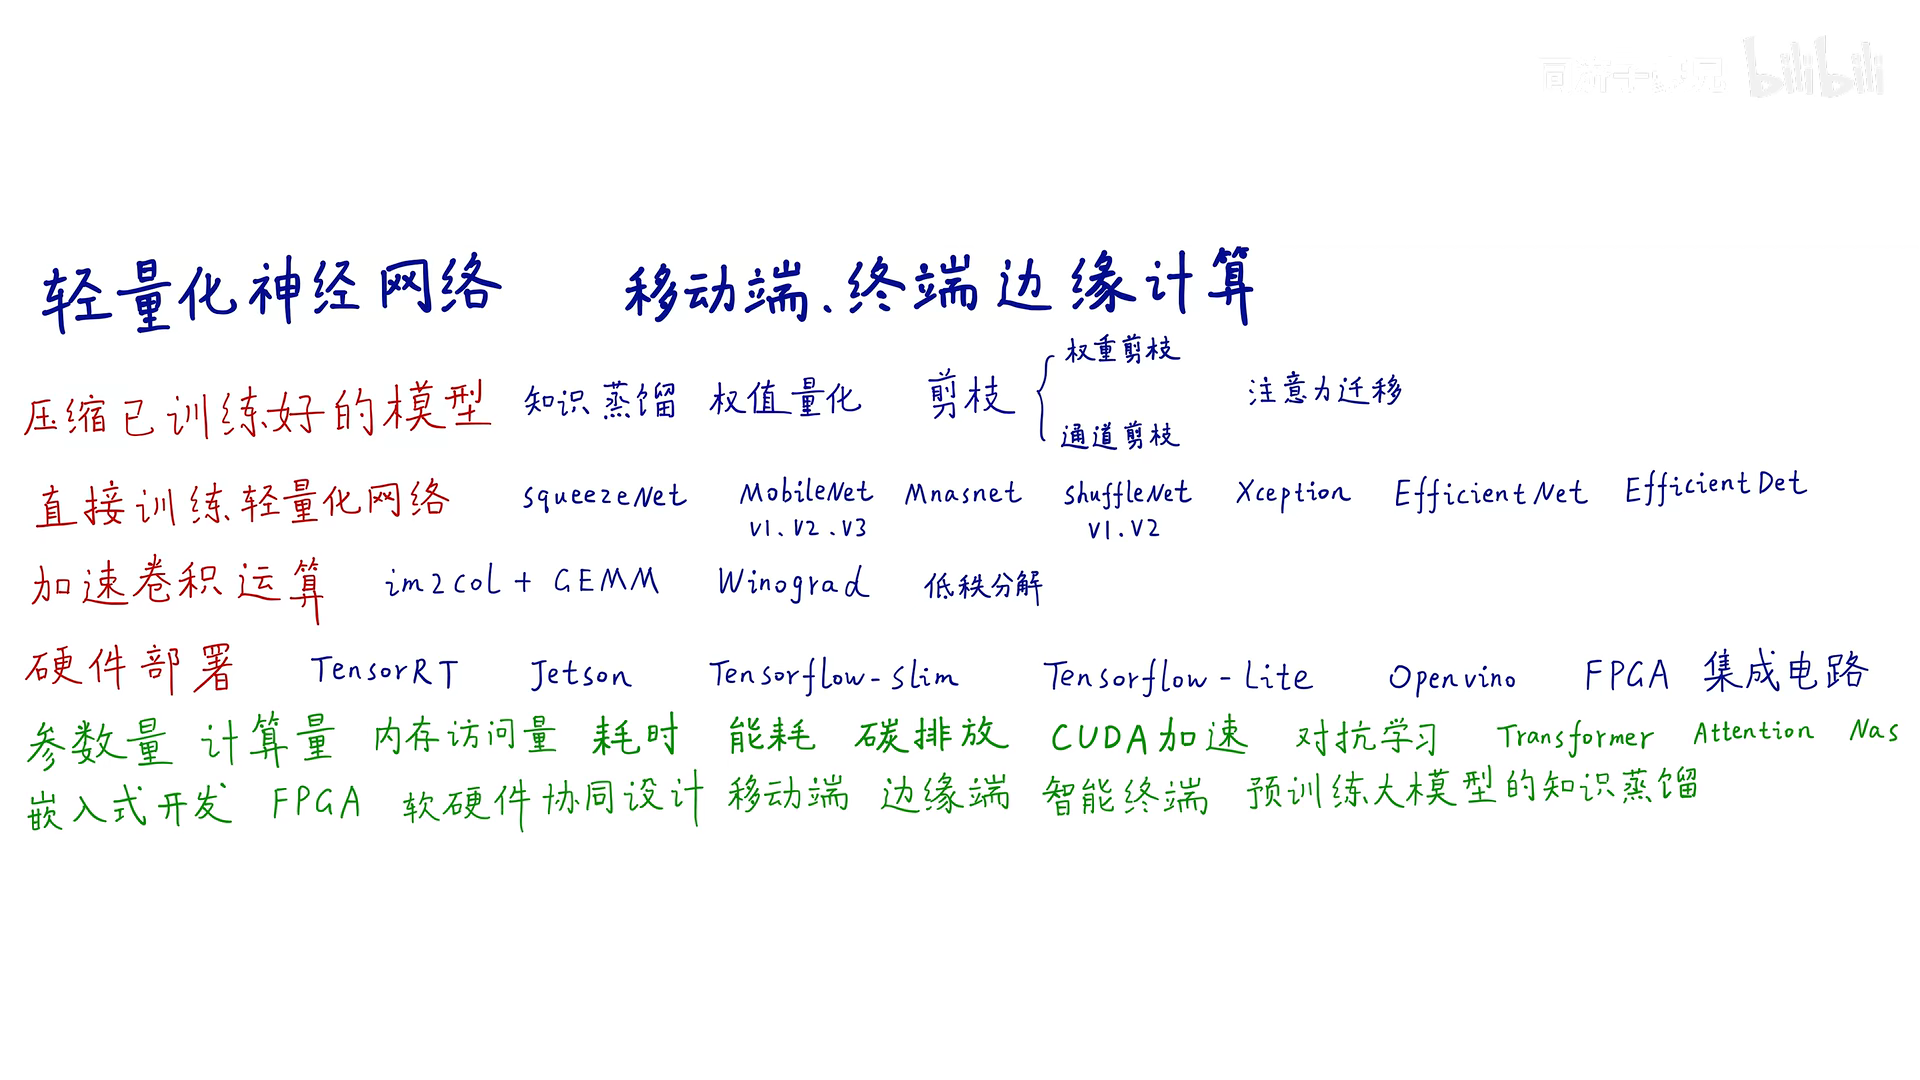 bilibili
轻量化神经网络 移动端、终端边缘计算
压缩已训练好的模型 知识蒸馏 权值量化 剪枝 { 权重剪枝 通道剪枝 注意力迁移
直接训练轻量化网络 squeezeNet MobileNet Mnasnet shuffleNet Xception EfficientNet EfficientDet
V1、V2、V3 V1.V2
加速卷积运算 im2col + GEMM Winograd 低秩分解
硬件部署 TensorRT Jetson Tensorflow-slim Tensorflow-Lite Openvino FPGA 集成电路
参数量 计算量 内存访问量 耗时 能耗 碳排放 CUDA加速 对抗学习 Transformer Attention Nas
嵌入式开发 FPGA 软硬件协同设计 移动端 边缘端 智能终端 预训练大模型的知识蒸馏